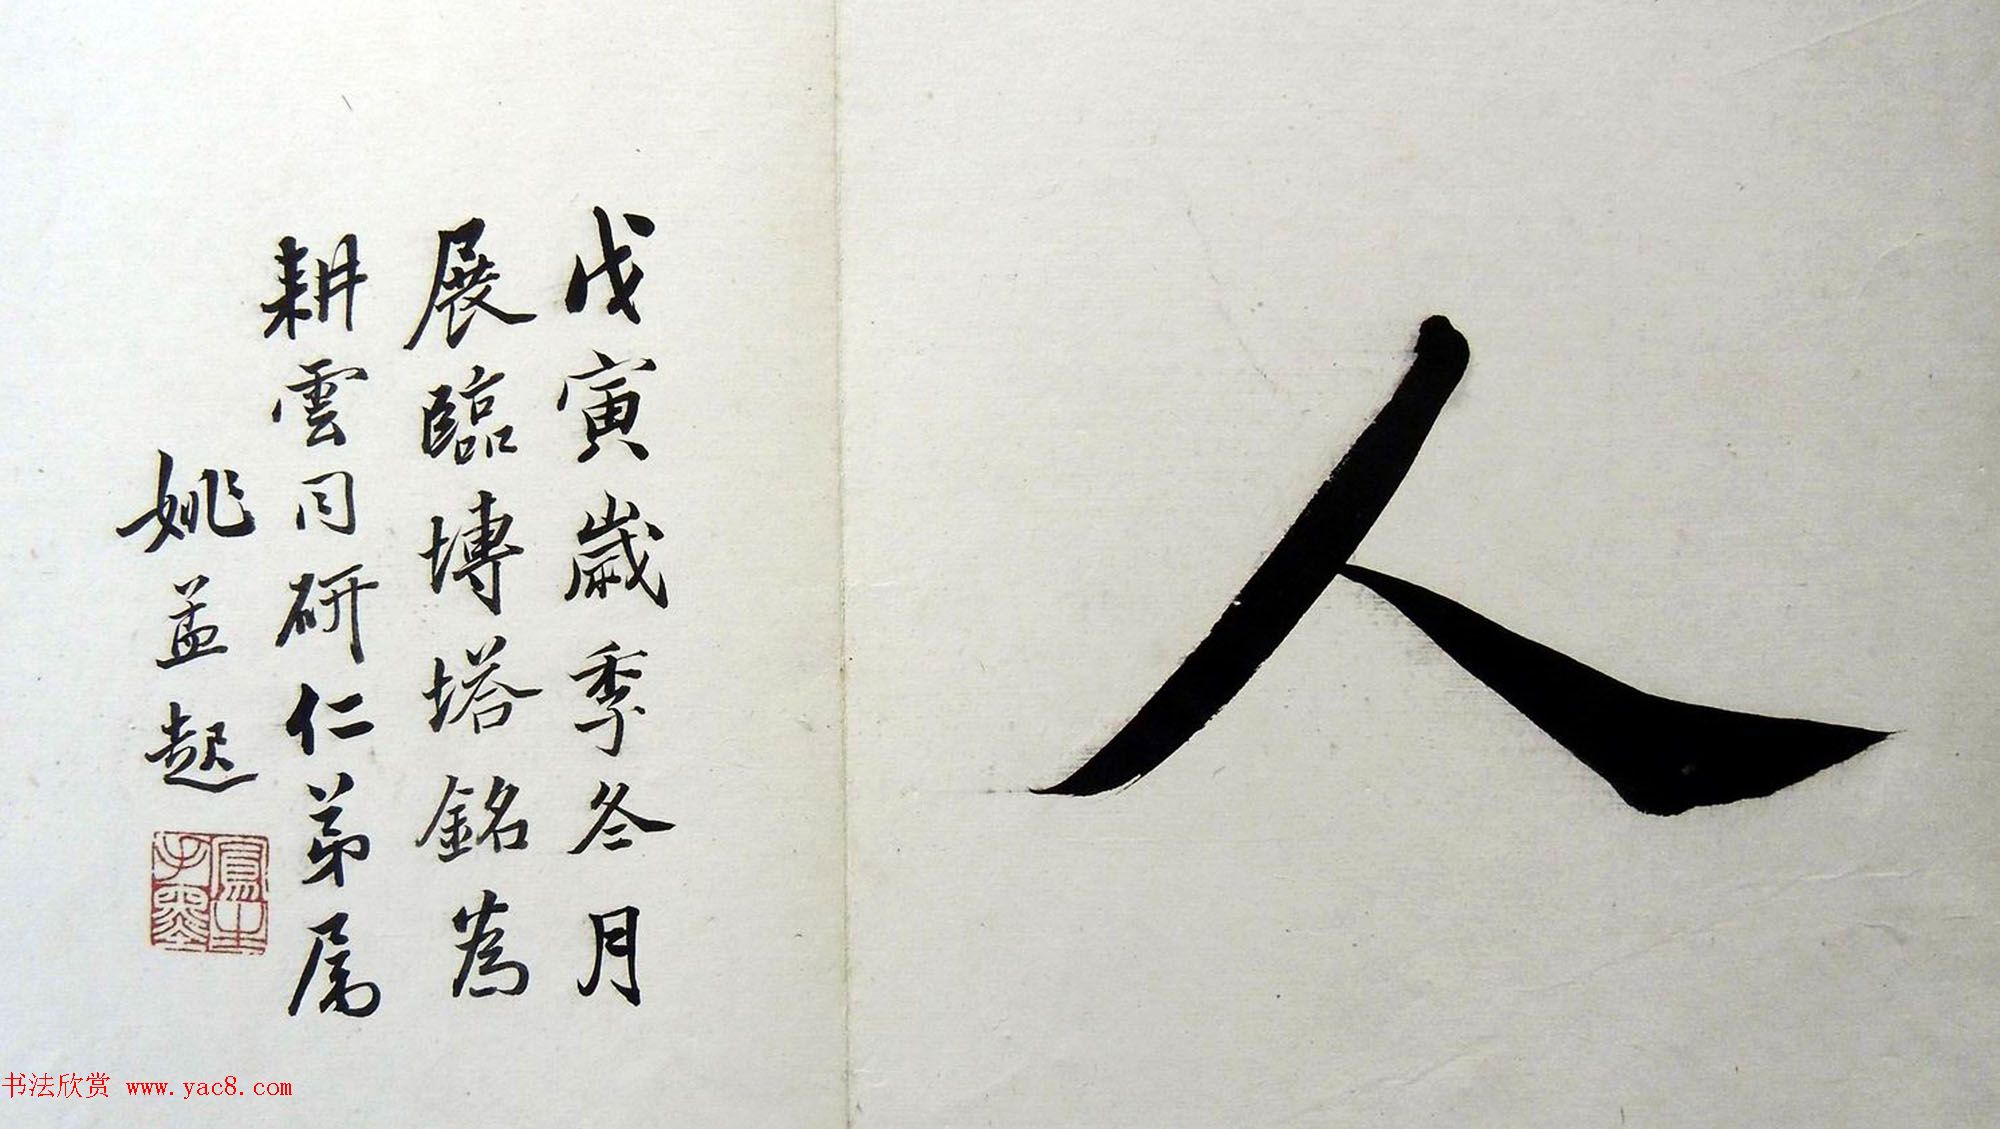 人
戊寅歲季冬月
展臨塼塔銘為
耕雲同研仁弟属
姚孟起
鳳生
手墨
书法欣赏 www.yac8.com